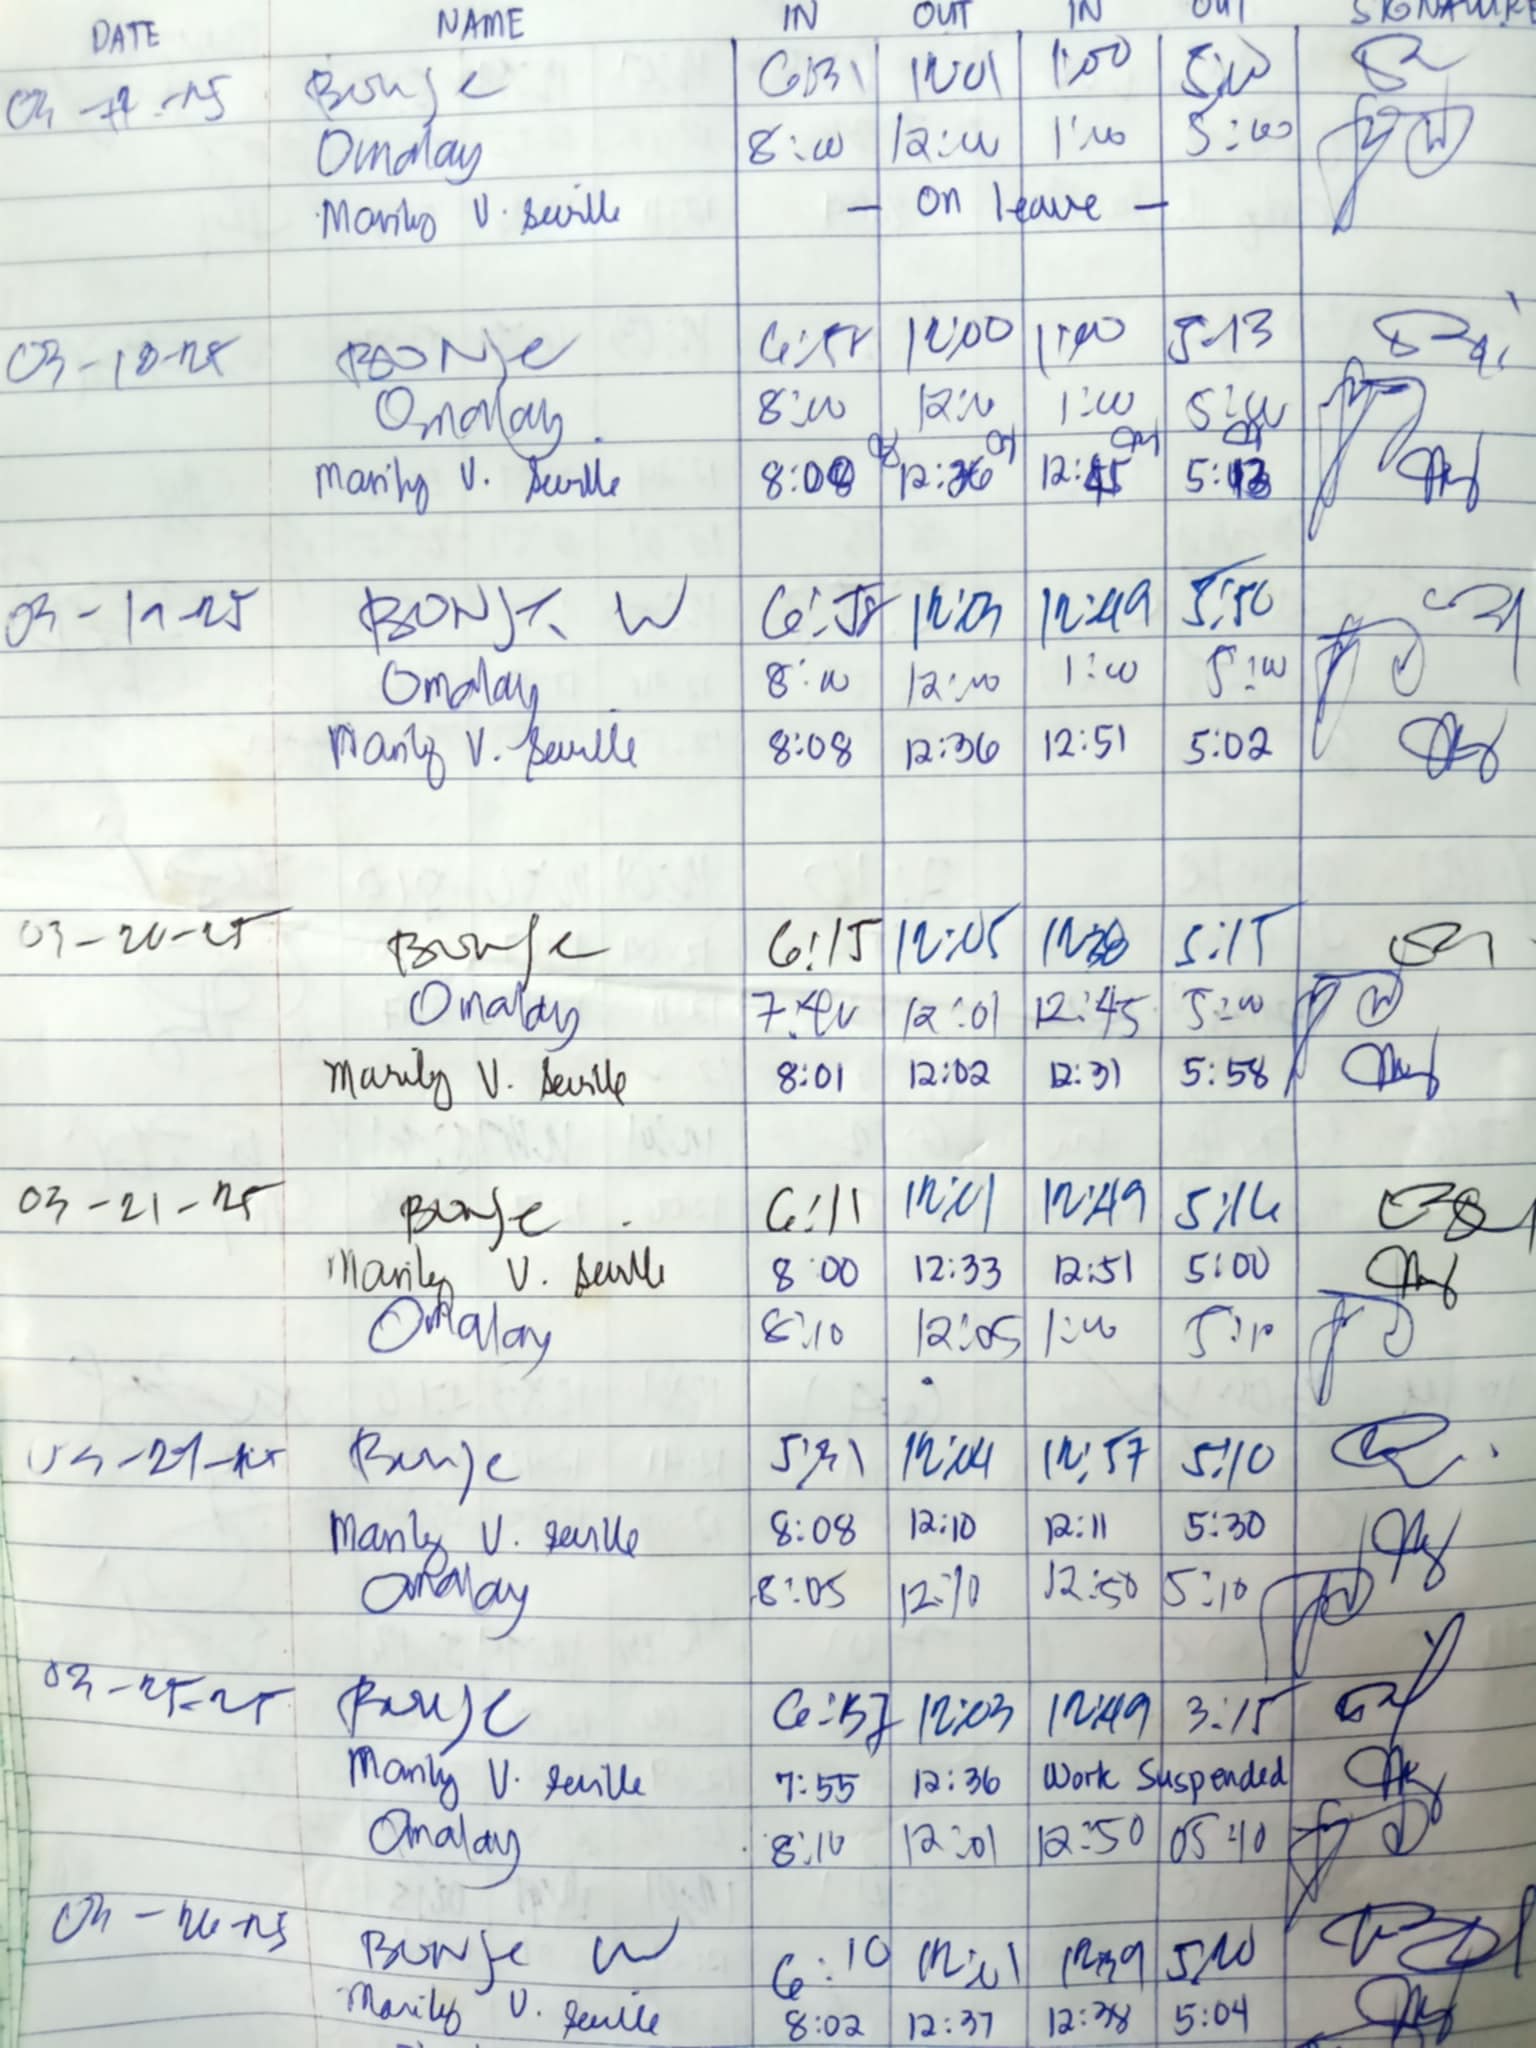 DATE NAME IN OUT IN OUT SIGNATURE
Bonje 6:31 12:01 1:00 5:10
Omalay 8:00 12:00 1:00 5:00
Marily V. Seville - On leave -
03-18-25 BONJE 12:00 1:00 5:13
Omalay 8:00 12:00 1:00 5:00
Marily V. Seville 8:08 12:36 12:45 5:13
03-19-25 BONJE W 6:58 12:03 12:49 5:50
Omalay 8:00 12:00 1:00 5:00
Marily V. Seville 8:08 12:36 12:51 5:02
03-20-25 Bonje 6:15 12:05 5:15
Omalay 7:40 12:01 12:45 5:00
Marily V. Seville 8:01 12:02 12:31 5:58
03-21-25 Bonje 6:11 12:01 12:49 5:16
Marily V. Seville 8:00 12:33 12:51 5:00
Omalay 8:10 12:05 1:00 5:10
Bonje 5:31 12:04 12:57 5:10
Marily V. Seville 8:08 12:10 12:11 5:30
Omalay 8:05 12:10 12:50 5:10
03-25-25 Bonje 6:57 12:03 12:49 3:15
Marily V. Seville 7:55 12:36 Work Suspended
Omalay 8:10 12:01 12:50
03-26-25 BONJE W 6:10 12:01 12:39 5:20
Marily V. Seville 8:02 12:37 12:38 5:04